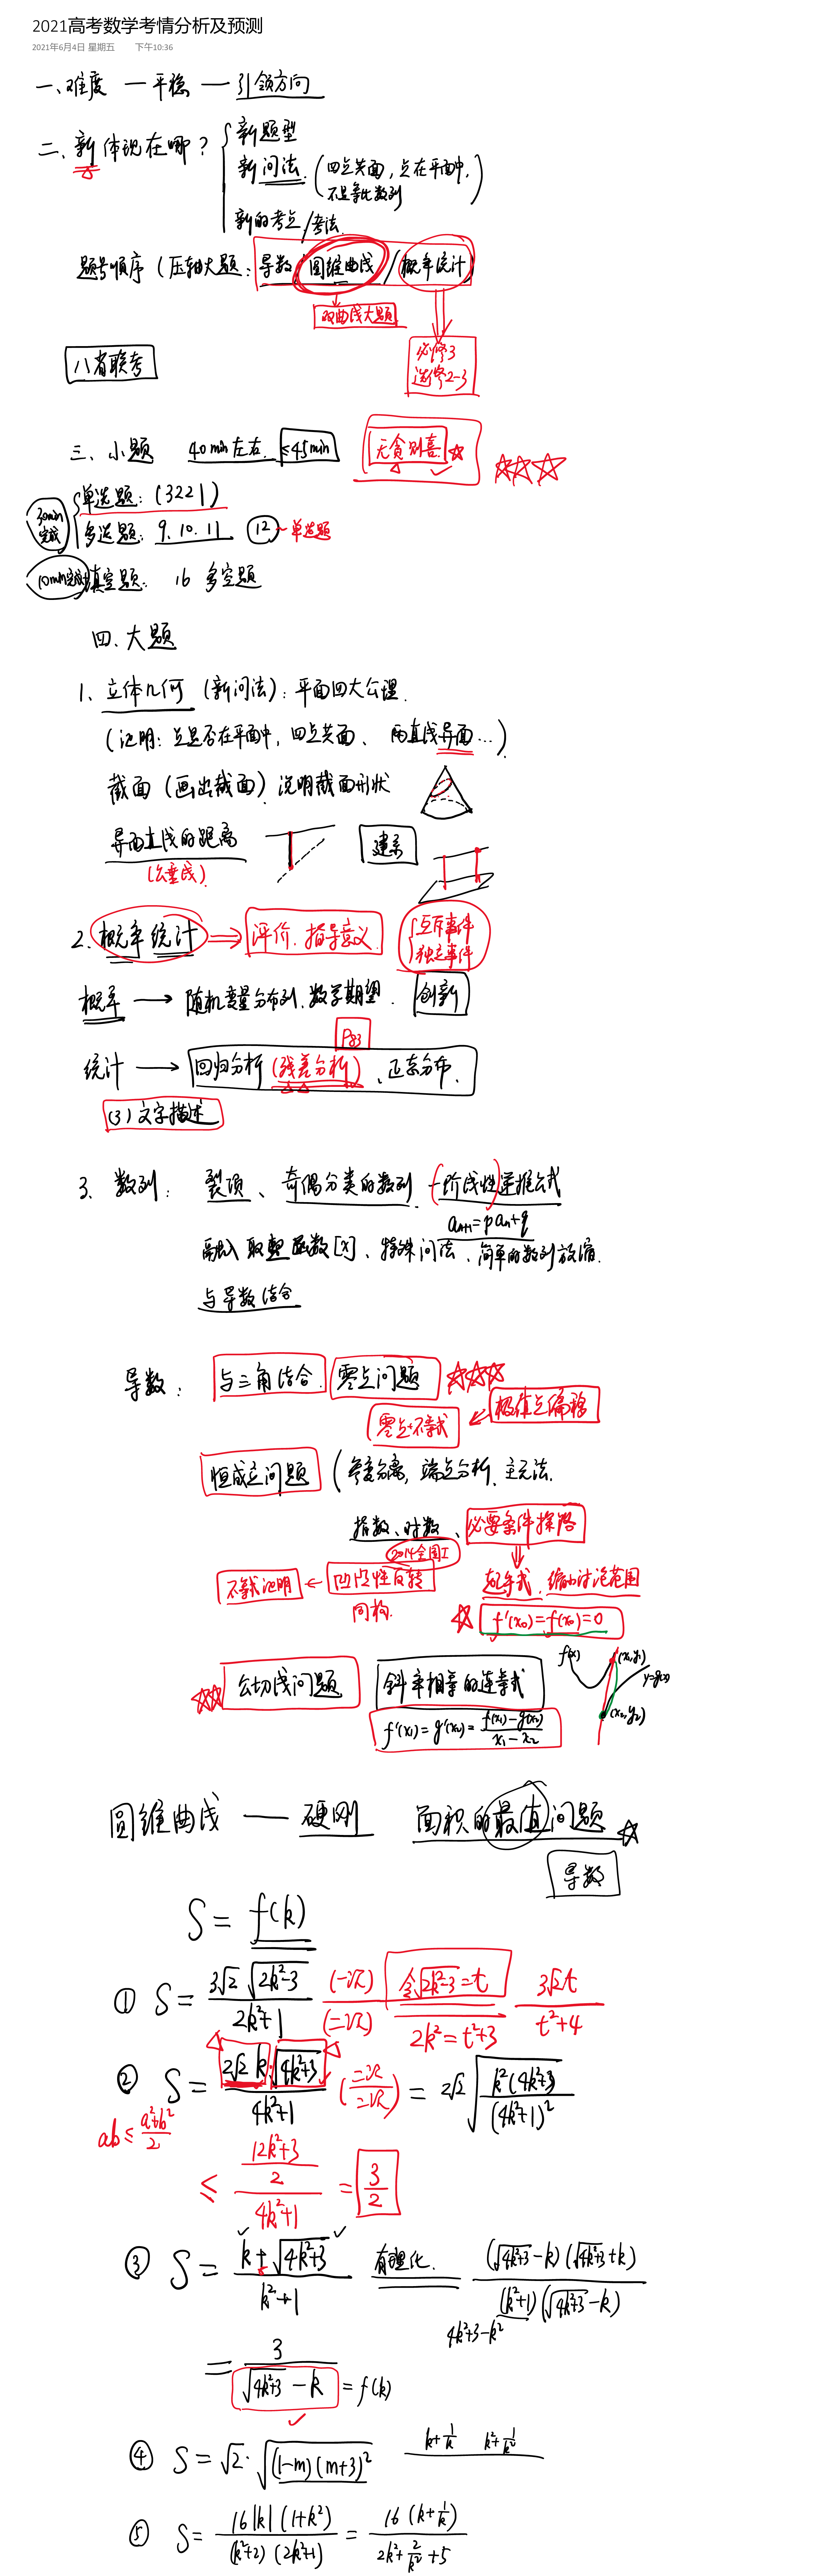 2021高考数学考情分析及预测
2021年6月4日 星期五 下午10:36
一、难度 — 平稳 — 引领方向
二、新体现在哪？
新题型
新问法. (四点共面, 点在平面中, 不是等比数列)
新的考点/考法.
题号顺序 (压轴大题: 导数/圆锥曲线/概率统计)
双曲线大题
必修3
选修2-3
八省联考
三、小题 40min左右. ≤45min 无贪则喜
30min完成
单选题: (3221)
多选题: 9. 10. 11 12 ~ 单选题
10min完成 填空题: 16 多空题
四、大题
1、立体几何 (新问法): 平面四大公理.
(证明: 点是否在平面中, 四点共面、两直线异面…)
截面 (画出截面) 说明截面形状
异面直线的距离 建系
(公垂线)
2. 概率统计 ⇒ 评价. 指导意义.
互斥事件
独立事件
概率 → 随机变量分布列. 数学期望. 创新
P83
统计 → 回归分析 (残差分析)、正态分布.
(3) 文字描述
3、数列: 裂项、奇偶分类的数列. 一阶线性递推公式
aₙ₊₁=paₙ+q
融入取整函数[x]、特殊问法、简单的数列放缩.
与导数结合
导数: 与三角结合. 零点问题
零点+不等式 ← 极值点偏移
恒成立问题 (参变分离, 端点分析、主元法.
指数、对数、必要条件探路
2014全国I
不等式证明 ← 凹凸性反转
同构.
缩小讨论范围
f'(x₀)=f(x₀)=0
公切线问题 斜率相等的连等式
f'(x₁)=g'(x₂)=(f(x₁)-g(x₂))/(x₁-x₂)
f(x) (x₁,y₁) y=g(x) (x₂,y₂)
圆锥曲线 — 硬刚 面积的最值问题
导数
S = f(k)
① S = 3√2 √(2k²-3) / (2k²+1) (一次)/(二次) 令√(2k²-3)=t 3√2t/(t²+4)
2k²=t²+3
② S = 2√2 k·√(4k²+3) / (4k²+1) (二次/二次) = 2√2 √(k²(4k²+3)/(4k²+1)²)
ab ≤ (a²+b²)/2
≤ ((12k²+3)/2)/(4k²+1) = 3/2
③ S = (k+√(4k²+3))/(k²+1) 有理化. (√(4k²+3)-k)(√(4k²+3)+k) / (k²+1)(√(4k²+3)-k)
4k²+3-k²
= 3/(√(4k²+3)-k) = f(k)
④ S = √2·√((1-m)(m+3)²) k+1/k k²+1/k²
⑤ S = 16|k|(1+k²)/((k²+2)(2k²+1)) = 16(k+1/k)/(2k²+2/k²+5)